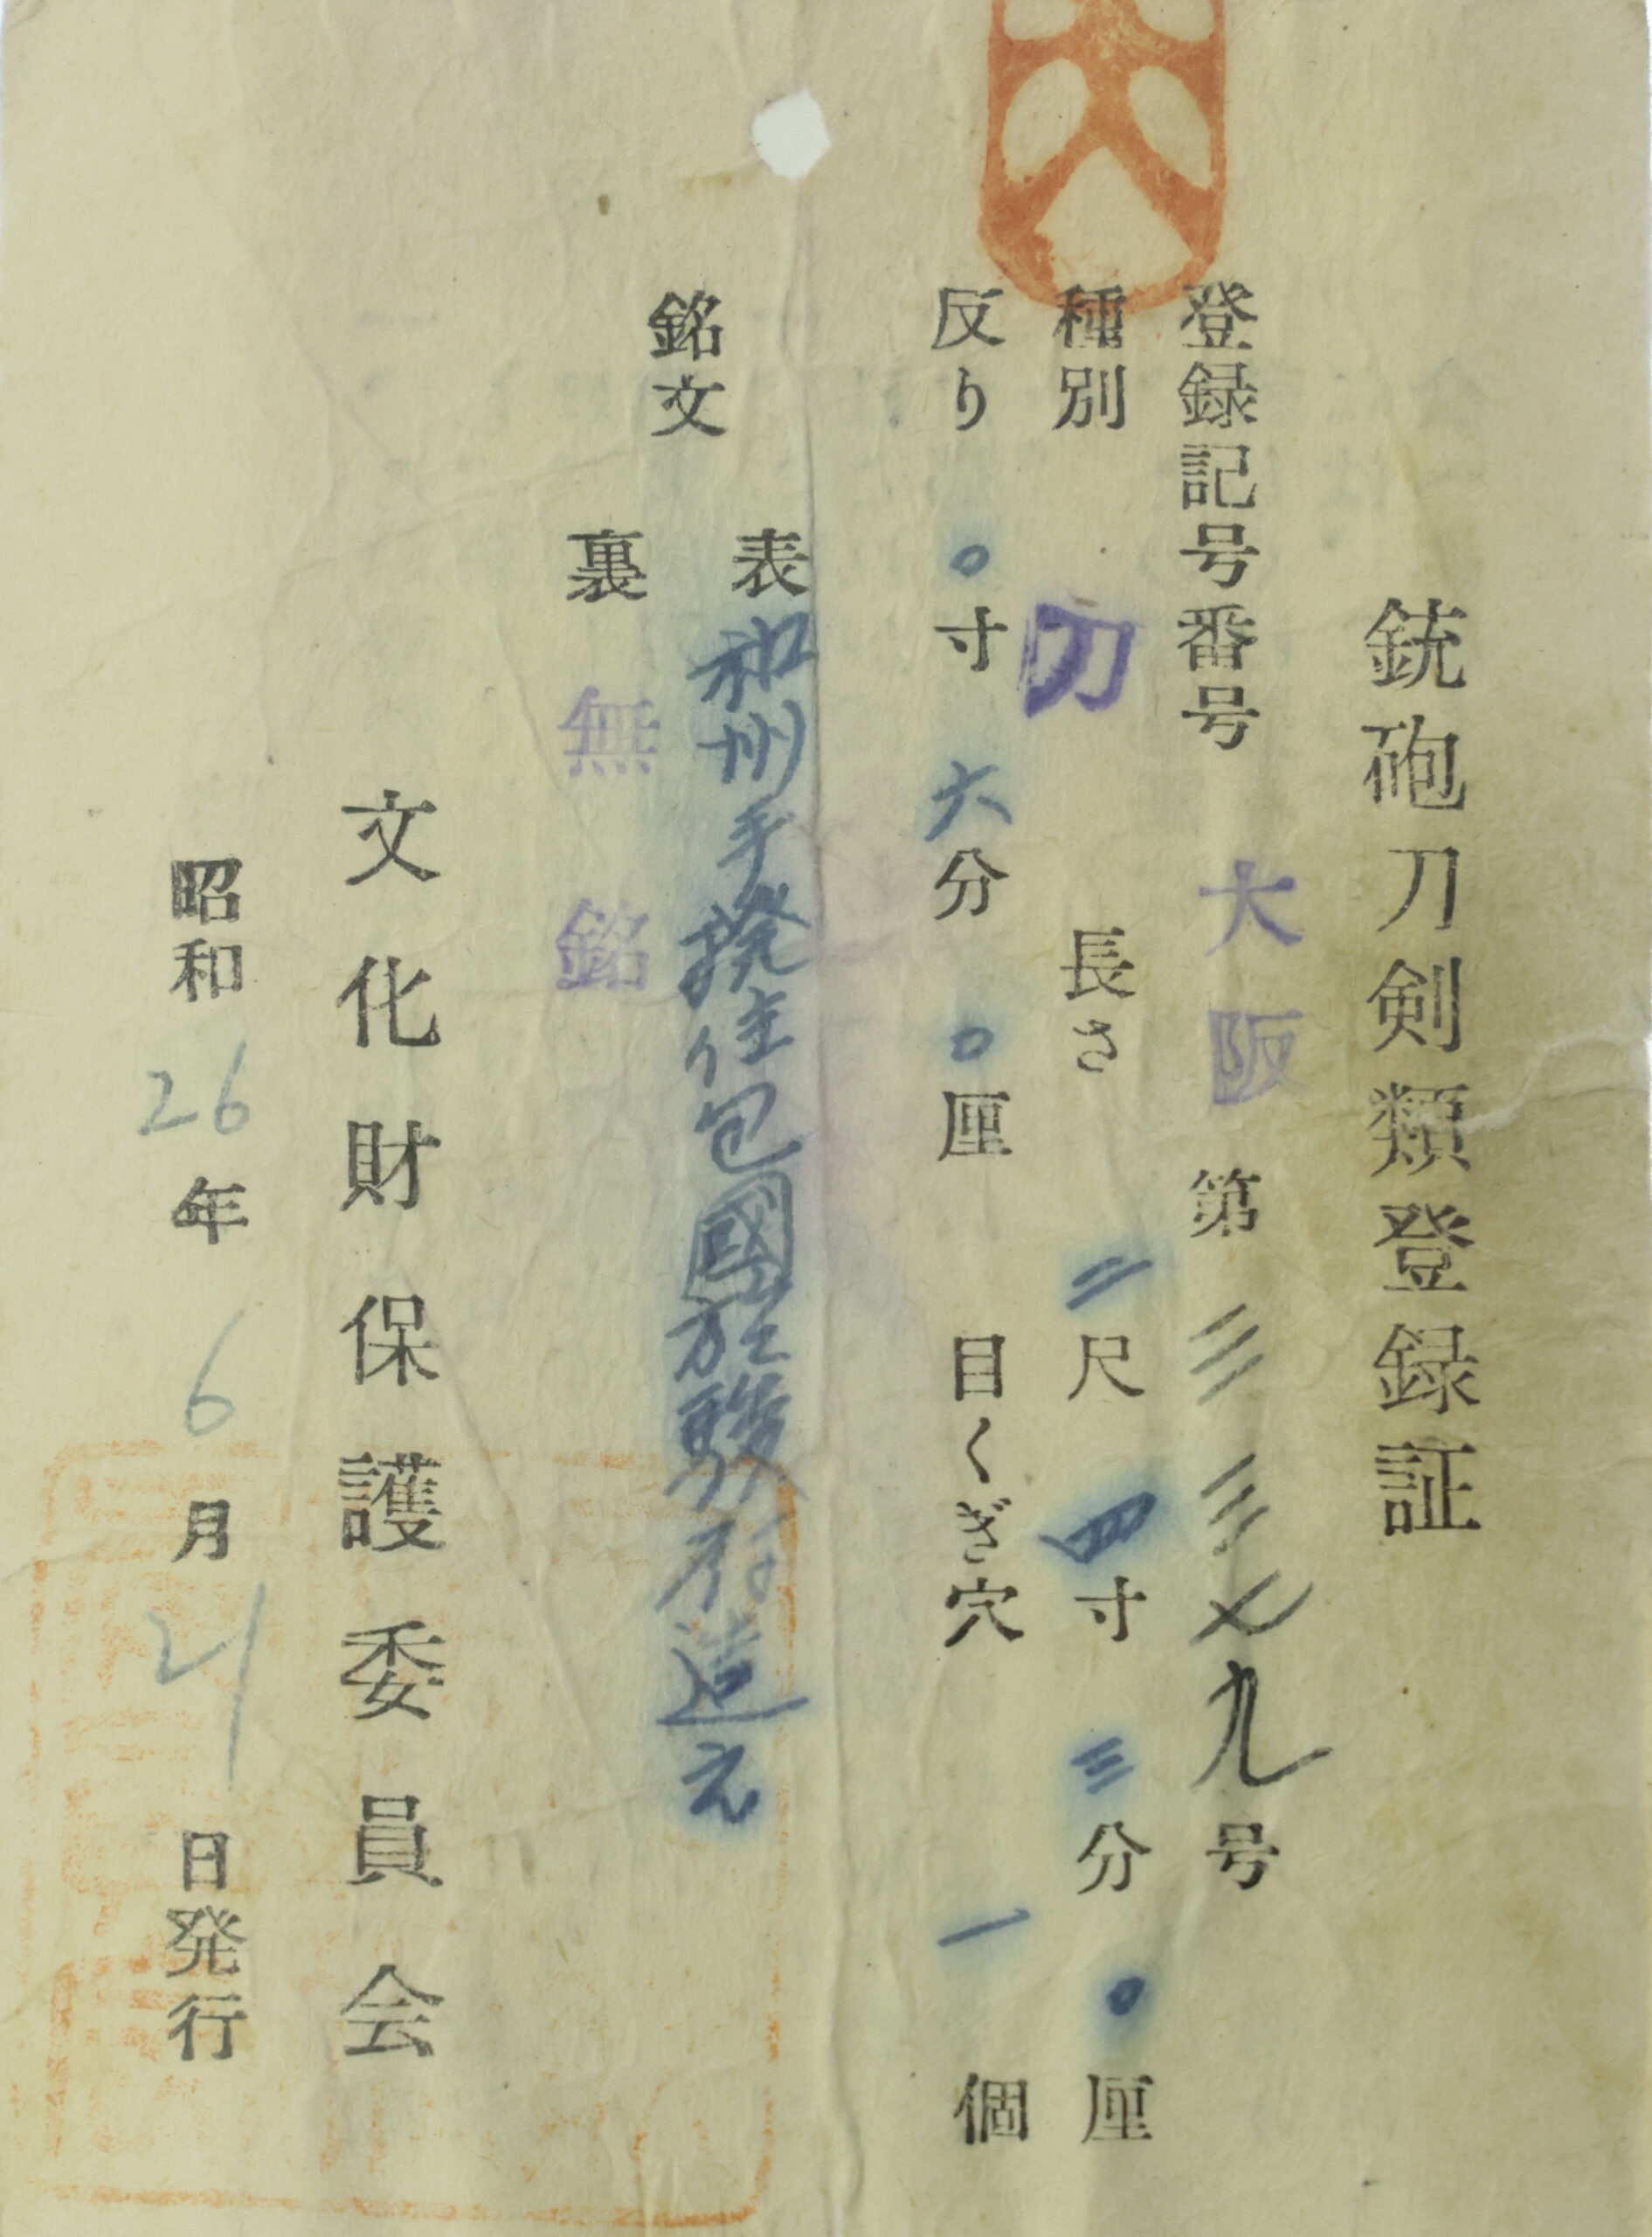 銃砲刀剣類登録証
登録記号番号 大阪 第三三七九号
種別 刀 長さ 二尺四寸三分〇厘
反り 〇寸六分〇厘 目くぎ穴 一個
銘文
表 和州手掻住包國於駿府造之
裏 無銘
文化財保護委員会
昭和26年6月21日発行